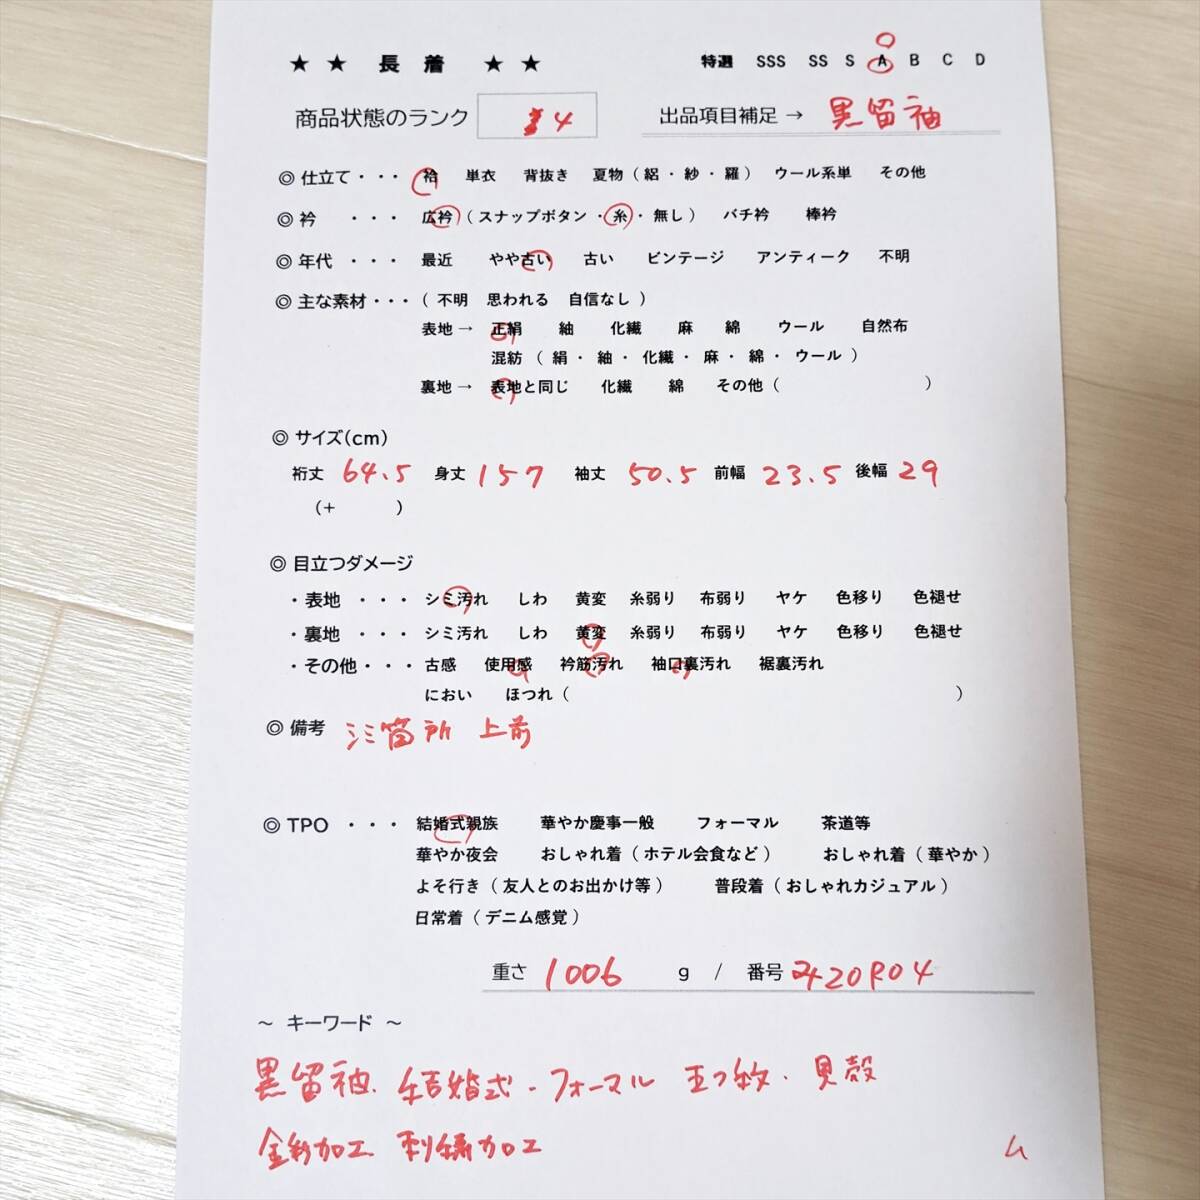 ★ ★ 長 着 ★ ★ 特選 SSS SS S A B C D
商品状態のランク 4 出品項目補足 → 黒留袖
◎ 仕立て・・・ 袷 単衣 背抜き 夏物（ 絽 ・ 紗 ・ 羅 ） ウール系単 その他
◎ 衿 ・・・ 広衿（ スナップボタン ・ 糸 ・ 無し ） バチ衿 棒衿
◎ 年代 ・・・ 最近 やや古い 古い ビンテージ アンティーク 不明
◎ 主な素材・・・（ 不明 思われる 自信なし ）
表地 → 正絹 紬 化繊 麻 綿 ウール 自然布
混紡 （ 絹 ・ 紬 ・ 化繊 ・ 麻 ・ 綿 ・ ウール ）
裏地 → 表地と同じ 化繊 綿 その他（ ）
◎ サイズ(cm)
裄丈 64.5 身丈 157 袖丈 50.5 前幅 23.5 後幅 29
（+ ）
◎ 目立つダメージ
・ 表地 ・・・ シミ汚れ しわ 黄変 糸弱り 布弱り ヤケ 色移り 色褪せ
・ 裏地 ・・・ シミ汚れ しわ 黄変 糸弱り 布弱り ヤケ 色移り 色褪せ
・ その他・・・ 古感 使用感 衿筋汚れ 袖口裏汚れ 裾裏汚れ
におい ほつれ（ ）
◎ 備考 シミ箇所 上前
◎ TPO ・・・ 結婚式親族 華やか慶事一般 フォーマル 茶道等
華やか夜会 おしゃれ着（ ホテル会食など ） おしゃれ着（ 華やか ）
よそ行き（ 友人とのお出かけ等 ） 普段着（ おしゃれカジュアル ）
日常着（ デニム感覚 ）
重さ 1006 g / 番号
～ キーワード ～
黒留袖. 結婚式 - フォーマル 五つ紋 . 貝殻
金彩加工 刺繍加工
ム